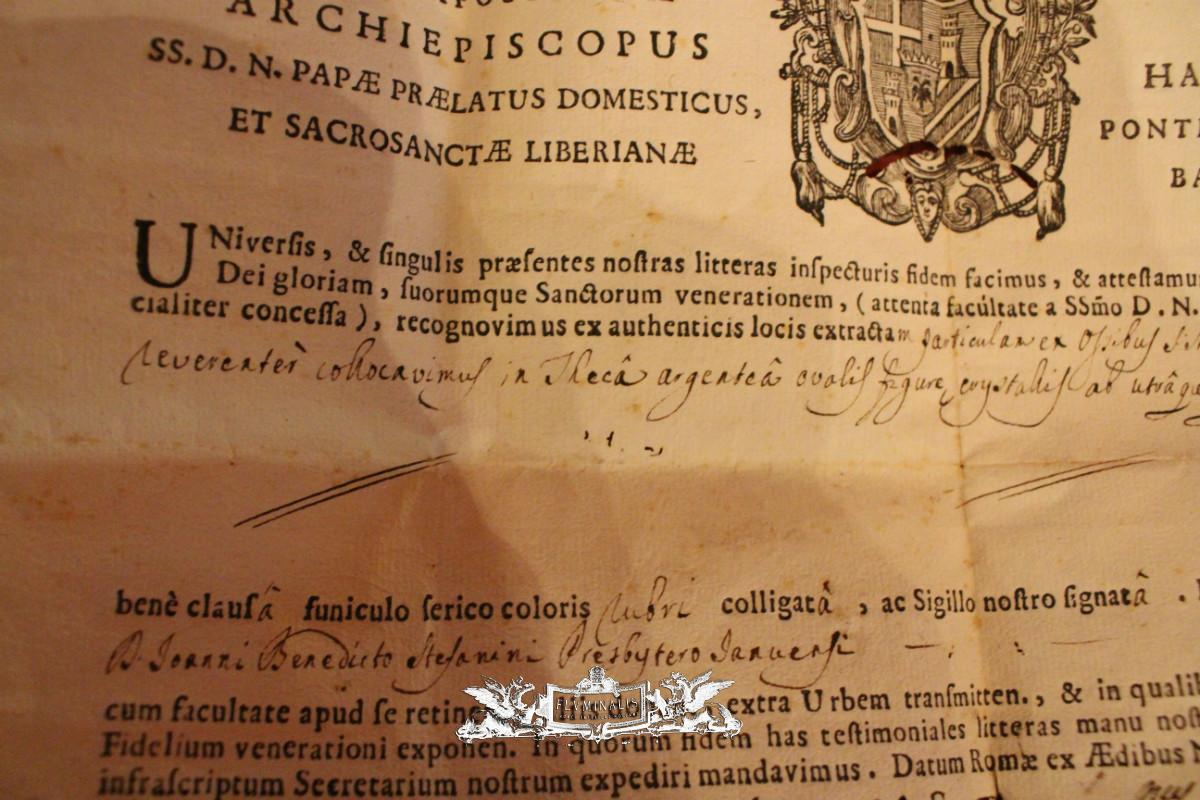 ARCHIEPISCOPUS
SS. D. N. PAPÆ PRÆLATUS DOMESTICUS,
ET SACROSANCTÆ LIBERIANÆ
HA
PONTI
BA
UNiverſis, & ſingulis præſentes noſtras litteras inſpecturis fidem facimus, & atteſtamu
Dei gloriam, ſuorumque Sanctorum venerationem, (attenta facultate a SSmo D. N.
cialiter conceſſa), recognovimus ex authenticis locis extractam particulam ex Ossibus
reverenter collocavimus in Thecâ argenteâ ovalis figuræ, crystallis ab utrâque
benè clauſâ funiculo ſerico coloris rubri colligatâ, ac Sigillo noſtro ſignatâ.
D. Joanni Benedicto Stefanini Presbytero Januensi
cum facultate apud ſe retine extra Urbem tranſmitten., & in qualib
Fidelium venerationi exponen. In quorum fidem has teſtimoniales litteras manu noſt
infraſcriptum Secretarium noſtrum expediri mandavimus. Datum Romæ ex Ædibus
FLUMINALIS